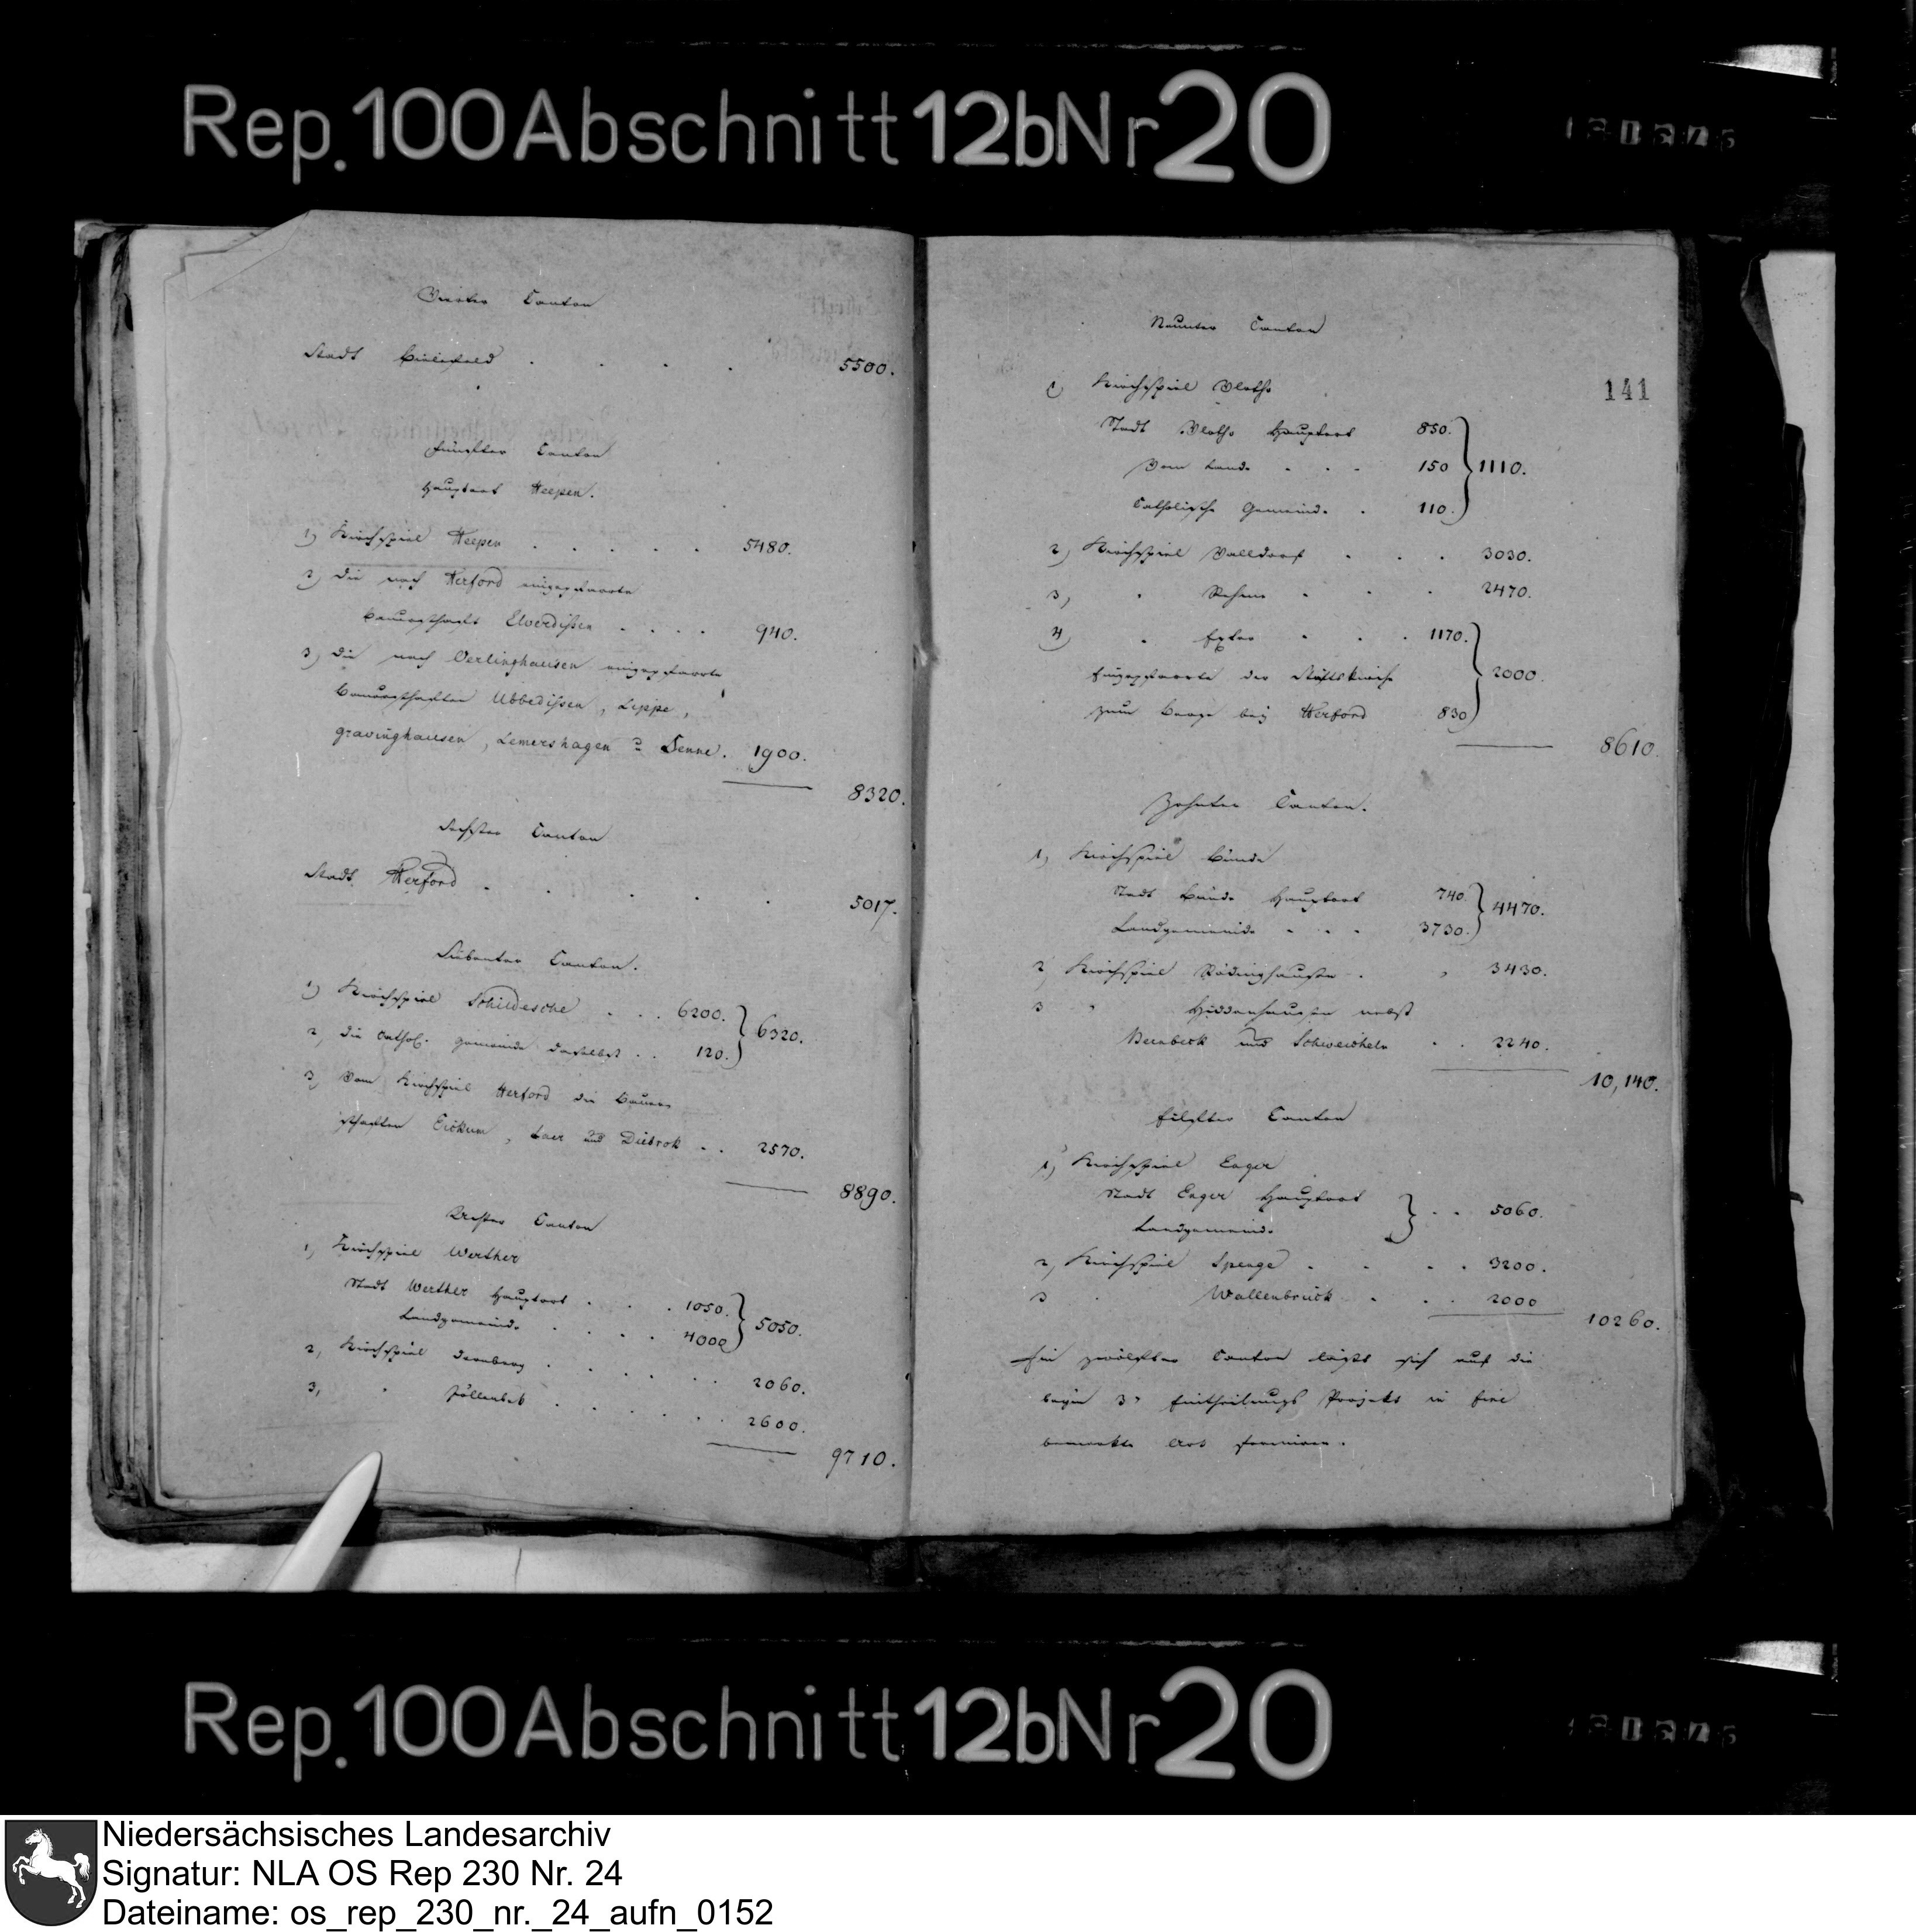 Rep. 100 Abschnitt 12b Nr 20
Vierter Canton
Stadt Bielefeld . . . . 5500.
Fünfter Canton
Hauptort Heepen.
1) Kirchspiel Heepen . . . . . 5480.
2) Die nach Herford eingepfarrte
Bauerschaft Elverdißen . . . . 940.
3) Die nach Oerlinghausen eingepfarrte
Bauerschaften Ubbedißen, Lippe,
gravinghausen, Lemershagen u Senne. 1900.
8320.
Sechster Canton
Stadt Herford . . . . . 5017.
Siebenter Canton.
1) Kirchspiel Schildesche . . . 6200.
2, die Cathol. Gemeinde daselbst . . 120. } 6320.
3, Vom Kirchspiel Herford die Bauer
schaften Eickum, Laer und Diebrok . . 2570.
8890.
Achter Canton
1, Kirchspiel Werther
Stadt Werther Hauptort . . . 1050.
Landgemeinde . . . . 4000 } 5050.
2, Kirchspiel Dornberg . . . . . 2060.
3, " Jöllenbek . . . . . . 2600.
9710.
Neunter Canton
141
1) Kirchspiel Vlotho
Stadt Vlotho Hauptort 850.
Vom Lande . . . 150 } 1110.
Catholische Gemeinde . 110.
2) Kirchspiel Valldorf . . . 3030.
3, " Rehme . . . 2470.
4) " Exter . . . 1170.
Eingepfarrte der Stiftskirche } 2000.
zum Berge bey Herford 830
8610.
Zehnter Canton.
1, Kirchspiel Bünde
Stadt Bünde Hauptort 740.
Landgemeinde . . . 3730. } 4470.
2, Kirchspiel Rödinghausen . , 3430.
3 " Hiddenhausen nebst
und . . 2240.
10,140.
Eilfter Canton
1, Kirchspiel Enger
Stadt Enger Hauptort } . . 5060.
Landgemeinde
2, Kirchspiel Spenge . . . . 3200.
3 " Wallenbrück . . . 2000
10260.
Ein zwölfter Canton läßt sich auf die
beym 3n Eintheilungs Projekt in fine
bemerkte Art formiren.
Rep. 100 Abschnitt 12b Nr 20
Niedersächsisches Landesarchiv
Signatur: NLA OS Rep 230 Nr. 24
Dateiname: os_rep_230_nr._24_aufn_0152